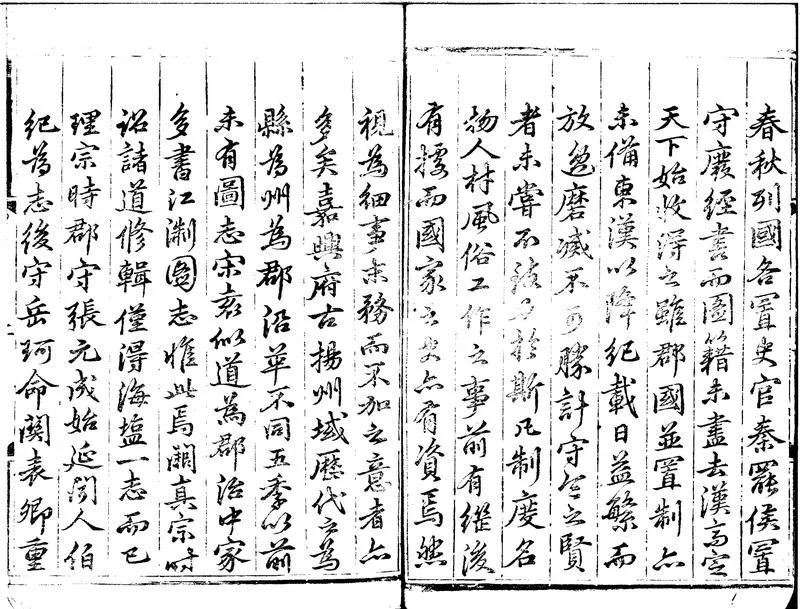 春秋列國各置史官秦罷侯置
守廢經書而圖籍未盡去漢高定
天下始收得之雖郡國並置制亦
未備東漢以降紀載日益繁而
放逸磨滅不可勝計守令之賢
者未嘗不致力於斯凡制度名
物人材風俗工作之事前有繼後
有據而國家之史亦有資焉然
視為細事末務而不加之意者亦
多矣嘉興府古揚州域歷代之為
縣為州為郡沿革不同五季以前
未有圖志宋袁似道為郡治中家
多書江淛圖志惟此焉闕真宗時
詔諸道修輯僅得海塩一志而已
理宗時郡守張元成始延聞人伯
紀為志後守岳珂命關表卿重